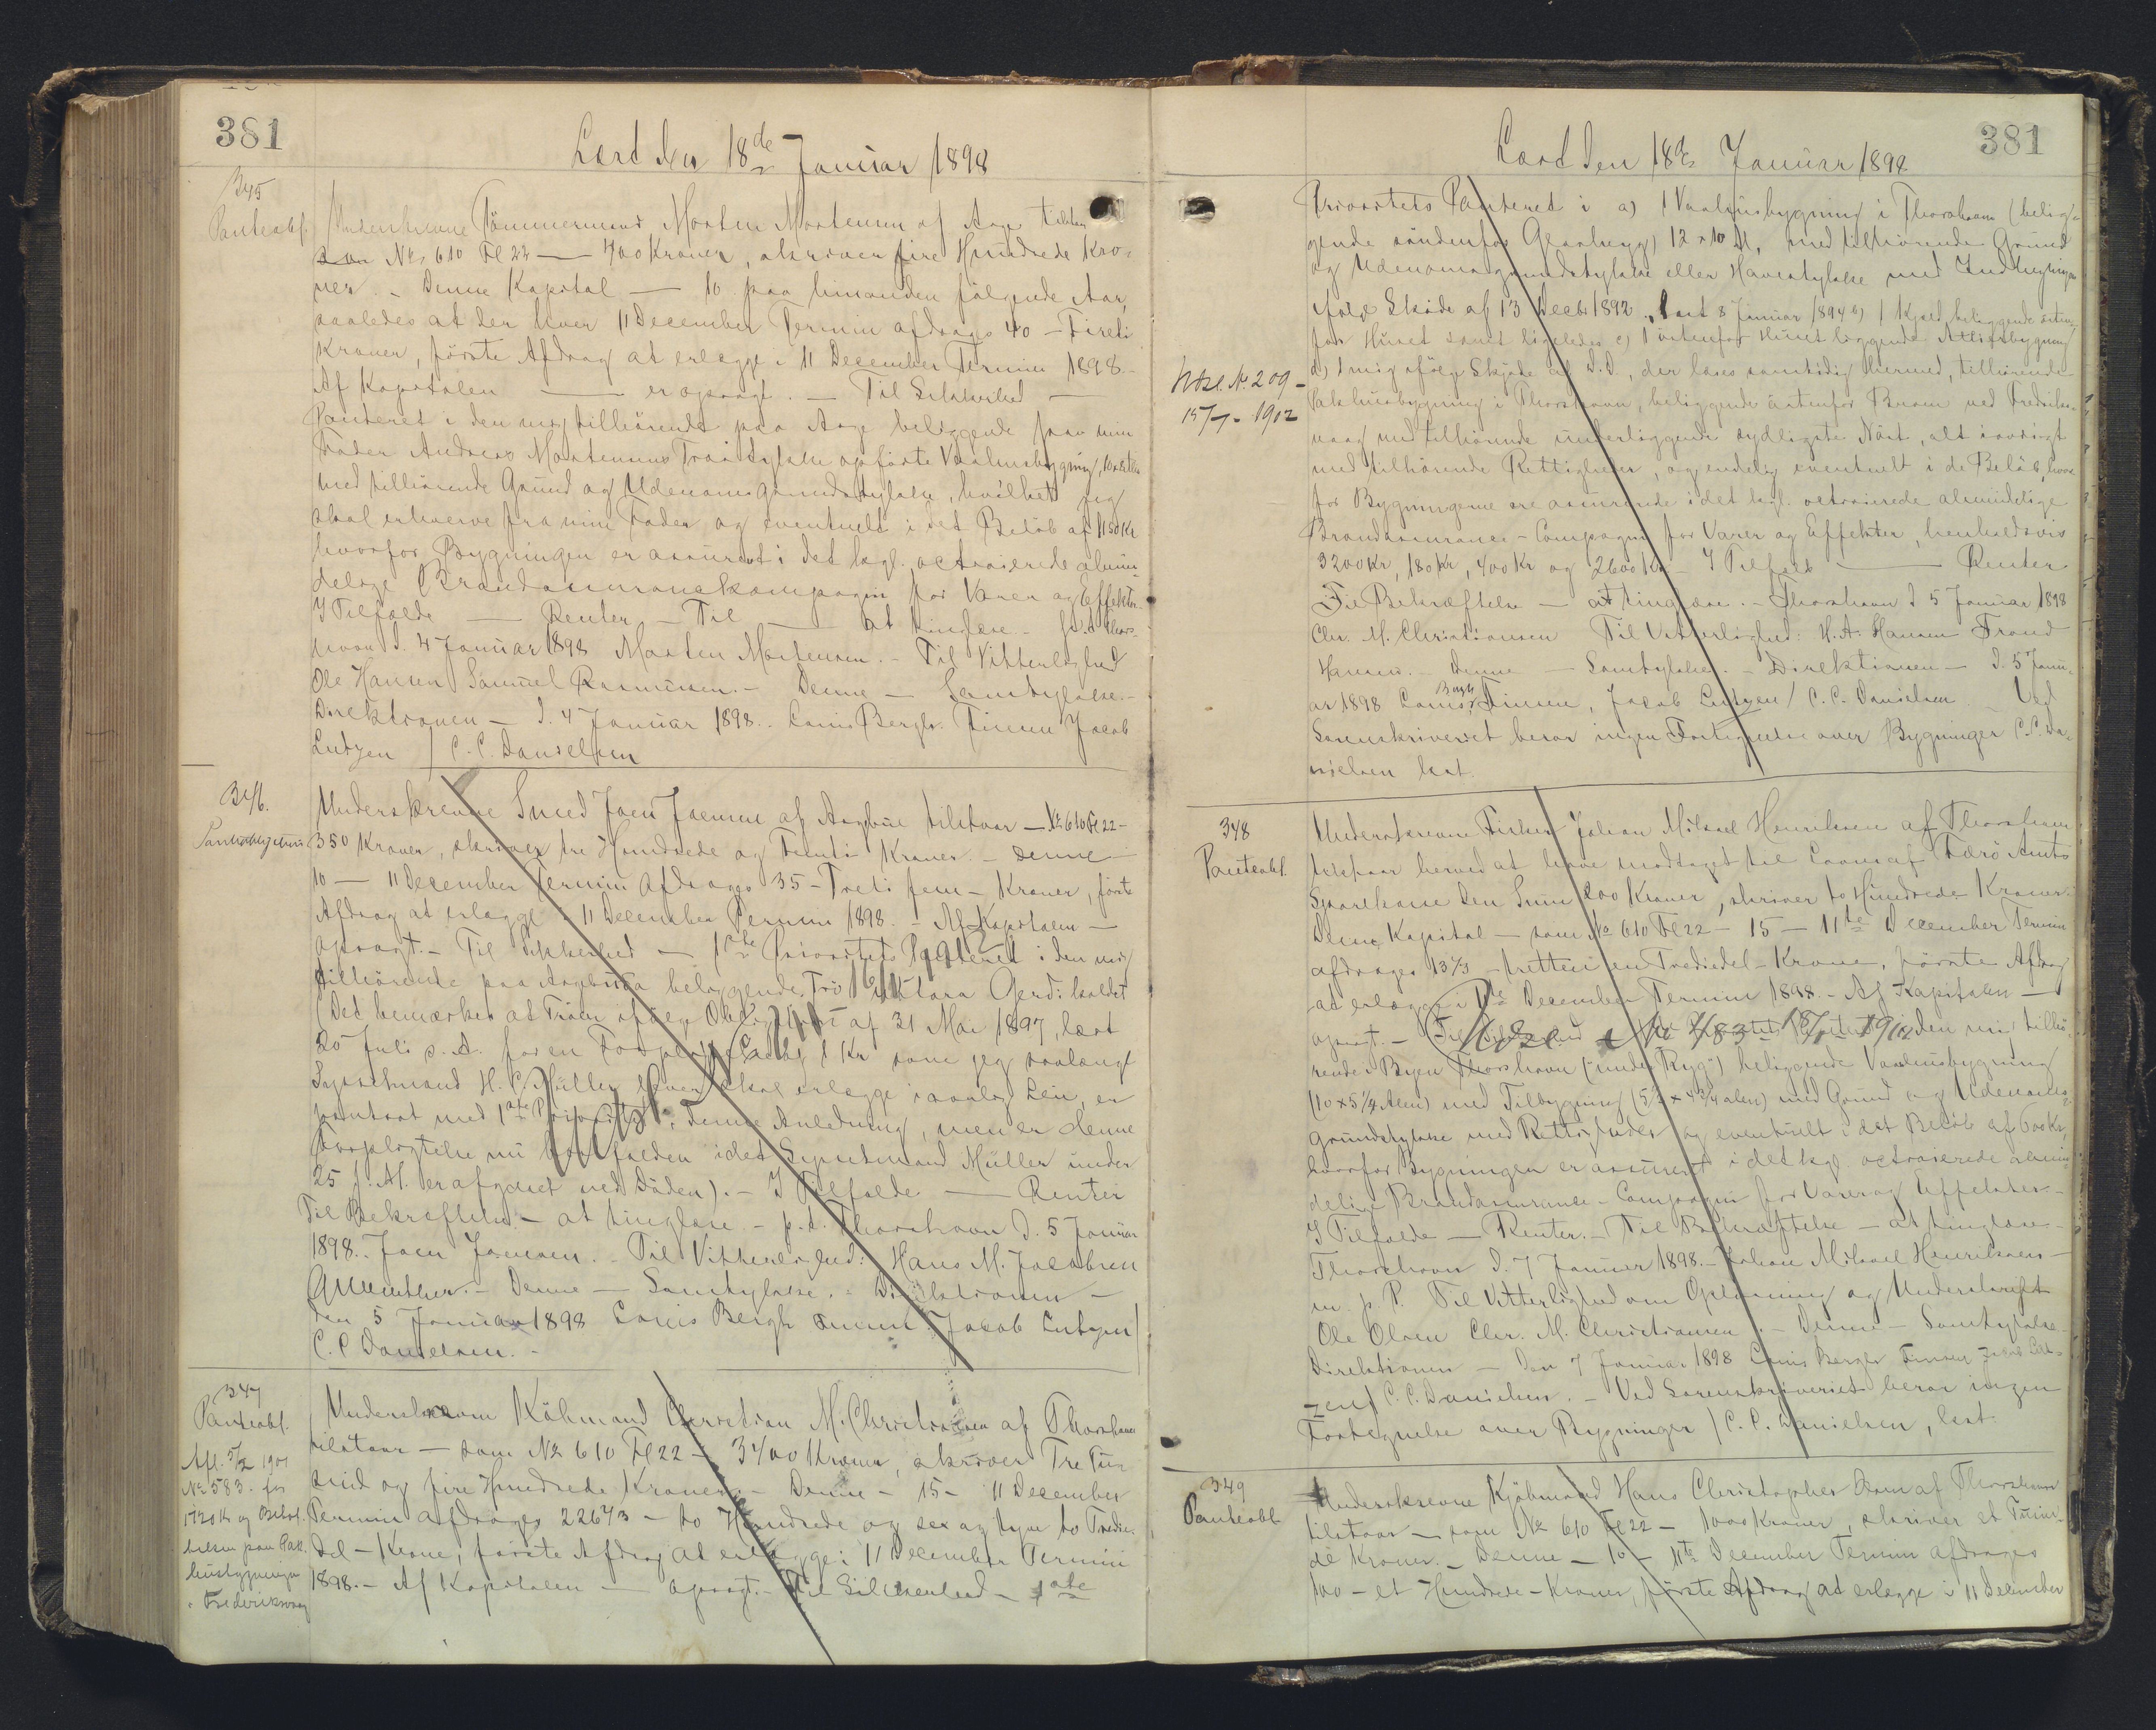 381
Læst den 18de Januar 1898
345
Panteobl.
Underskrevne Tömmermand Morten Mortensen af Aage tilstaar
som No 610 Fl 22 — 400 Kroner, skriver fire Hundrede Kro-
ner. - Denne Kapital — 10 paa hinanden fölgende Aar,
saaledes at der hver 11 December Termin afdrages 40 - Fireti
Kroner, förste Afdrag at erlægge i 11 December Termin 1898.-
Af Kapitalen — er opsagt. — Til Sikkerhed —
Panteret i den mig tilhörende paa Aage beliggende paa min
Fader Andreas Mortensens Tröstykke opförte Vaaningsbygning,
med tilhörende Grund og Udenomsgrundstykke, hvilket jeg
skal erhverve fra min Fader og eventuelt i det Belöb af 1150 Kr
hvorfor Bygningen er assureret i det kgl. octroierede almin-
delige Brandassurancekompagni for Varer og Effekter.
I Tilfælde — Renter - Til — at tinglæse - p.t. Thors-
havn d. 4 Januar 1898 Morten Mortensen. - Til Vitterlighed
Ole Hansen Samuel Rasmussen. - Denne — Samtykkelse.-
Direktionen — d. 4 Januar 1898. Louis Bergh. Finsen Jacob
Lützen / C. C. Danielsen
346.
Panteobligation
Underskrevne Smed Joen Joensen af Aagbue tilstaar — No 610 Fl 22 -
350 Kroner, skriver tre Hundrede og Femti Kroner - Denne
10 — 11 December Termin Afdrages 35 - Treti fem - Kroner, förste
Afdrag at erlægge i 11 December Termin 1898. - Af Kapitalen —
opsagt. - Til Sikkerhed — 1ste Prioritets Panteret i den mig
tilhörende paa beliggende Trö Gerdi kaldet
(Det bemærkes at Tröen ifölge af 31 Mai 1897, læst
20 Juli s. A. for en 1 Kr som jeg saalangt
Sysselmand H. C. Müller lever skal erlægge i aarlig Leie, er
pantsat med 1ste Prioritet i denne Anledning, men er denne
Forpligtelse nu bortfalden idet Sysselmand Müller under
25 f. M. er afgaaet ved Döden). - I Tilfælde — Renter
Til Bekræftelse - at tinglæse - p.t. Thorshavn d. 5 Januar
1898. Joen Joensen. - Til Vitterlighed: Hans M. Jacobsen
- Denne — Samtykkelse. - Direktionen —
den 5 Januar 1898 Louis Bergh Finsen. Jacob Lützen /
C. C. Danielsen. -
347
Panteobl.
Afl. 5/2 1901
No 583. for
1720 Kr og
paa Pak-
husbygningen
i Frederiksvaag
Underskrevne Köbmand Christian M. Christiansen af Thorshavn
tilstaar — som No 610 Fl 22 - 3400 Kroner, skriver Tre Tu-
sind og fire Hundrede Kroner. - Denne - 15 - 11 December
Termin afdrages 226 2/3 - to Hundrede og sex og tyve to Tredie-
del - Krone, förste Afdrag at erlægge i 11 December Termin
1898. - Af Kapitalen — opsagt. - Til Sikkerhed - 1ste
381
Læst den 18de Januar 1898
Prioritets Panteret i a) 1 Vaaningsbygning i Thorshavn (belig-
gende söndenfor ) 12 x 10 Al, med tilhörende Grund
og Udenomsgrundstykke eller Havestykke med Indhegning
ifölge Skjöde af 13 Decbr 1892, læst 8 Januar 1894 b) 1 Kjeld beliggende östen-
for Huset samt ligeledes c) 1 östenfor Huset liggende
d) 1 mig ifölge Skjöde af D.D., der læses samtidig hermed, tilhörende
Pakhusbygning i Thorshavn, beliggende östenfor Broen ved Frederiks-
vaag med tilhörende underliggende sydligste Nöst, alt iövrigt
med tilhörende Rettigheder, og endelig eventuelt i de Belöb, hvor-
for Bygningerne ere assurerede i det kgl. octroierede almindelige
Brandassurance-Compagni for Varer og Effekter, henholdsvis
3200 Kr, 180 Kr, 400 Kr og 2600 Kr - I Tilfælde — Renter
Til Bekræftelse — at tinglæse. - Thorshavn d 5 Januar 1898
Chr. M. Christiansen Til Vitterlighed: H. A. Hansen Trond
Hansen. Denne — Samtykkelse. - Direktionen — d. 5 Janu-
ar 1898 Louis Bergh, Finsen, Jacob Lützen / C. C. Danielsen. Ved
Sorenskriveriet beror ingen Fortegnelse over Bygninger C. C. Da-
nielsen læst.
Udsl. No. 209 -
15/7 - 1902
348
Panteobl.
Underskrevne Fisker Johan Mikael Henriksen af Thorshavn
tilstaar herved at have modtaget til Laans af Færö Amts
Sparekasse den Sum 200 Kroner, skriver to Hundrede Kroner.
Denne Kapital — som No 610 Fl 22 - 15 - 11te December Termin
afdrages 13 1/3 - tretten en Trediedel - Krone, förste Afdrag
at erlægge i 11te December Termin 1898. - Af Kapitalen —
opsagt. - Til Sikkerhed 1ste Prioritets Panteret i den mig tilhö-
Udsl. No 483 1902
rende i Byen Thorshavn ("under Ryg") beliggende Vaaningsbygning
(10 x 5 1/4 Alen) med Tilbygning (5 1/2 x 4 3/4 alen) med Grund og Udenoms-
grundstykke med Rettigheder og eventuelt i det Belöb af 600 Kr,
hvorfor Bygningen er assureret i det kgl. octroierede almin-
delige Brandassurance-Compagni for Varer og Effekter. -
I Tilfælde — Renter. - Til Bekræftelse — at tinglæse -
Thorshavn d. 7 Januar 1898. - Johan Mikael Henriksen -
m. p. P. Til Vitterlighed om Oplæsning og Underskrift
Ole Olsen Chr. M. Christiansen. - Denne - Samtykkelse -
Direktionen — den 7 Januar 1898 Louis Bergh Finsen Jacob Lüt-
zen / C. C. Danielsen. - Ved Sorenskriveriet beror ingen
Fortegnelse over Bygninger / C. C. Danielsen, læst.
349
Panteobl.
Underskrevne Kjöbmand Hans Christopher af Thorshavn
tilstaar — som No 610 Fl 22 - 1000 Kroner, skriver et Tusin-
de Kroner. - Denne — 10 — 11te December Termin afdrages
100 - et Hundrede - Kroner, förste Afdrag at erlægge i 11 December